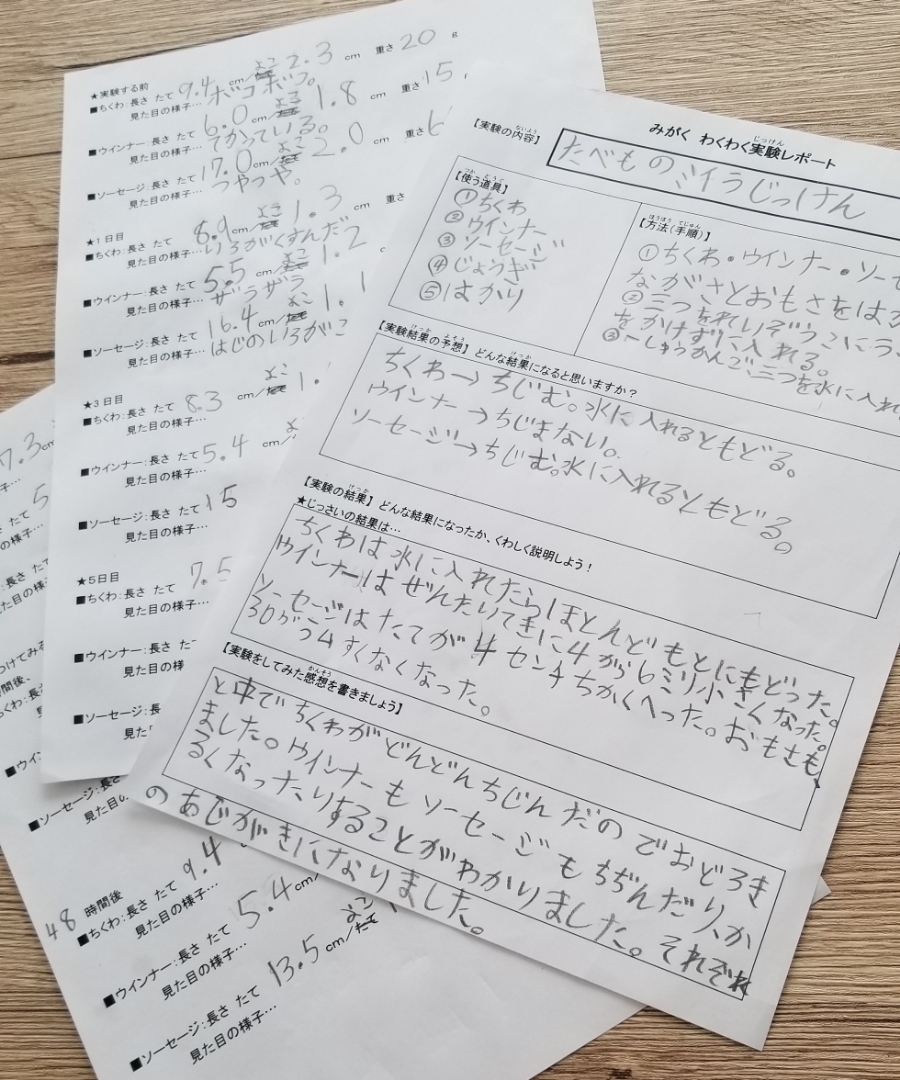 みがく わくわく実験レポート
【実験の内容】
たべものミイラじっけん
【使う道具】
①ちくわ
②ウインナー
③ソーセージ
④じょうぎ
⑤はかり
【方法(手順)】
①ちくわ・ウインナー・ソーセ
ながさとおもさをはか
②三つをれいぞうこにラ
をかけずに入れる。
③一しゅうかんで、三つを水に入れ
【実験結果の予想】どんな結果になると思いますか?
ちくわ→ちじむ。水に入れるともどる。
ウインナー→ちじまない。
ソーセージ→ちじむ。水に入れるともどる。
【実験の結果】どんな結果になったか、くわしく説明しよう!
★じっさいの結果は…
ちくわは水に入れたらほとんどもとにもどった。
ウインナーはぜんたいてきに4から6ミリ小さくなった。
ソーセージはたてが4センチちかくへった。おもさも、
30グラムすくなくなった。
【実験をしてみた感想を書きましょう】
と中でちくわがどんどんちじんだのでおどろき
ました。ウインナーもソーセージもちぢんだり、か
るくなったりすることがわかりました。それぞれ
のあじがきになりました。
★実験する前
■ちくわ:長さ たて 9.4 cm/よこ 2.3 cm 重さ 20 g
見た目の様子…ボコボコ。
■ウインナー:長さ たて 6.0 cm/よこ 1.8 cm 重さ 15
見た目の様子…てかっている。
■ソーセージ:長さ たて 17.0 cm/よこ 2.0 cm 重さ
見た目の様子…つやつや。
★1日目
■ちくわ:長さ たて 8.9 cm/よこ 1.3 cm 重さ
見た目の様子…いろがくすんだ
■ウインナー:長さ たて 5.5 cm/よこ 1.2 c
見た目の様子…ザラザラ
■ソーセージ:長さ たて 16.4 cm/よこ 1.1
見た目の様子…はじのいろがこ
★3日目
■ちくわ:長さ たて 8.3 cm/よこ 1.
見た目の様子…
■ウインナー:長さ たて 5.4 cm/
見た目の様子…
■ソーセージ:長さ たて 15
見た目の様子…
★5日目
■ちくわ:長さ たて 7.5
見た目の様子…
■ウインナー:長さ た
見た目の様
■ソーセージ:長
見た
7.3 cm
さ たて 5
目の様子…
:長さ たて
つけてみる
時間後
ちくわ:長さ
■ソーセージ:長さ
見た目の
48 時間後
■ちくわ:長さ たて 9.4
見た目の様子…
■ウインナー:長さ たて 5.4 cm/
見た目の様子…
■ソーセージ:長さ たて 13.5 cm/よこ
見た目の様子…